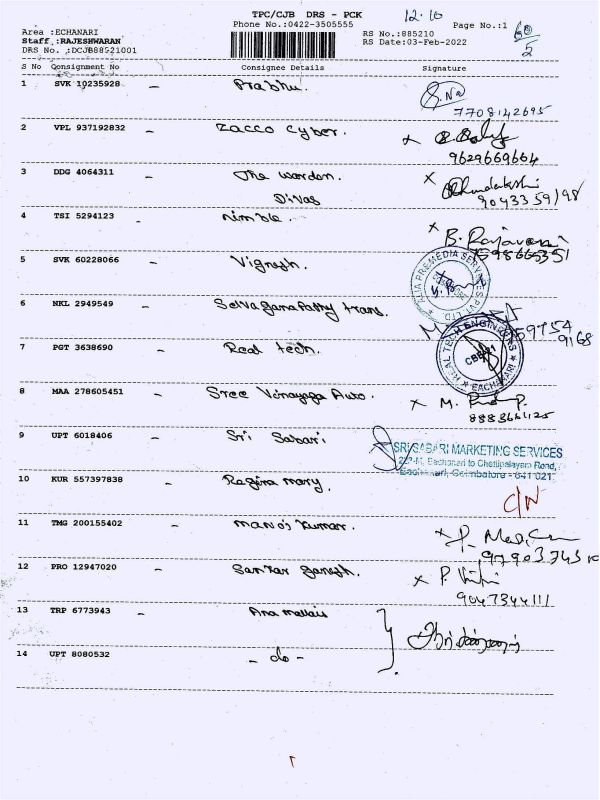 TPC/CJB DRS - PCK
12.10
Phone No.:0422-3505555
Page No.:1
60
2
Area :ECHANARI
RS No.:885210
Staff :RAJESHWARAN
RS Date:03-Feb-2022
DRS No. :DCJB88521001
S No Consignment No Consignee Details Signature
1 SVK 10235928 - Prabhu.
7708142695
2 VPL 937192832 - Zacco Cyber. x
9629669664
3 DDG 4064311 - The wardon. x
Divas
9043359198
4 TSI 5294123 - nimble. x
B. Rajaveni
5 SVK 60228066 - Vignesh.
6 NKL 2949549 - Selvaganapathy trans.
59754
9168
7 PGT 3638690 - Real tech.
REAL TECH ENGINEERS
EACHANARI
8 MAA 278605451 - Sree Vinayaga Auto. x M.
9 UPT 6018406 - Sri Sabari
SRI SABARI MARKETING SERVICES
Eachanari to Chettipalayam Road,
Eachanari, Coimbatore - 641 021
10 KUR 557397838 - Ragina mary.
C/N
11 TMG 200155402 - Manoj Kumar. x
12 PRO 12947020 - Sankar Ganesh. x P.
9047344111
13 TRP 6773943 - Ana mallais
14 UPT 8080532 - do -